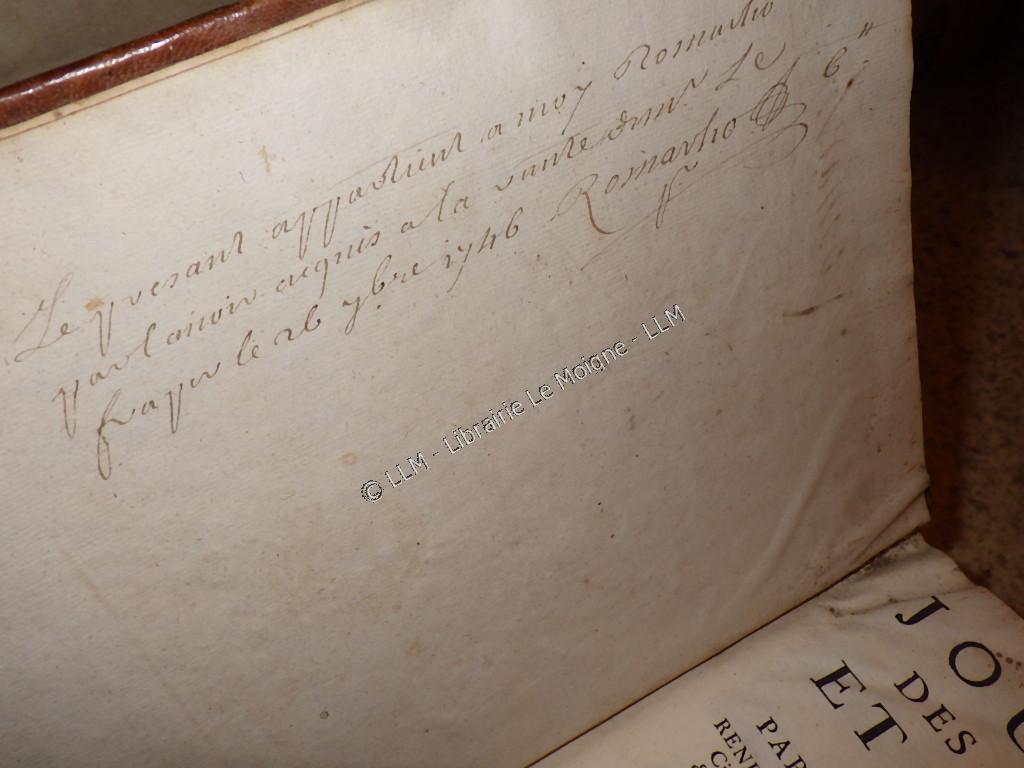 Le present appartient a moy Romarho
pour l'avoir acquis a la vante de mr Le
le 26 9bre 1746 Romarho
6"
© LLM - Librairie Le Moigne - LLM
JOU
DES
ET
PAR
RENE